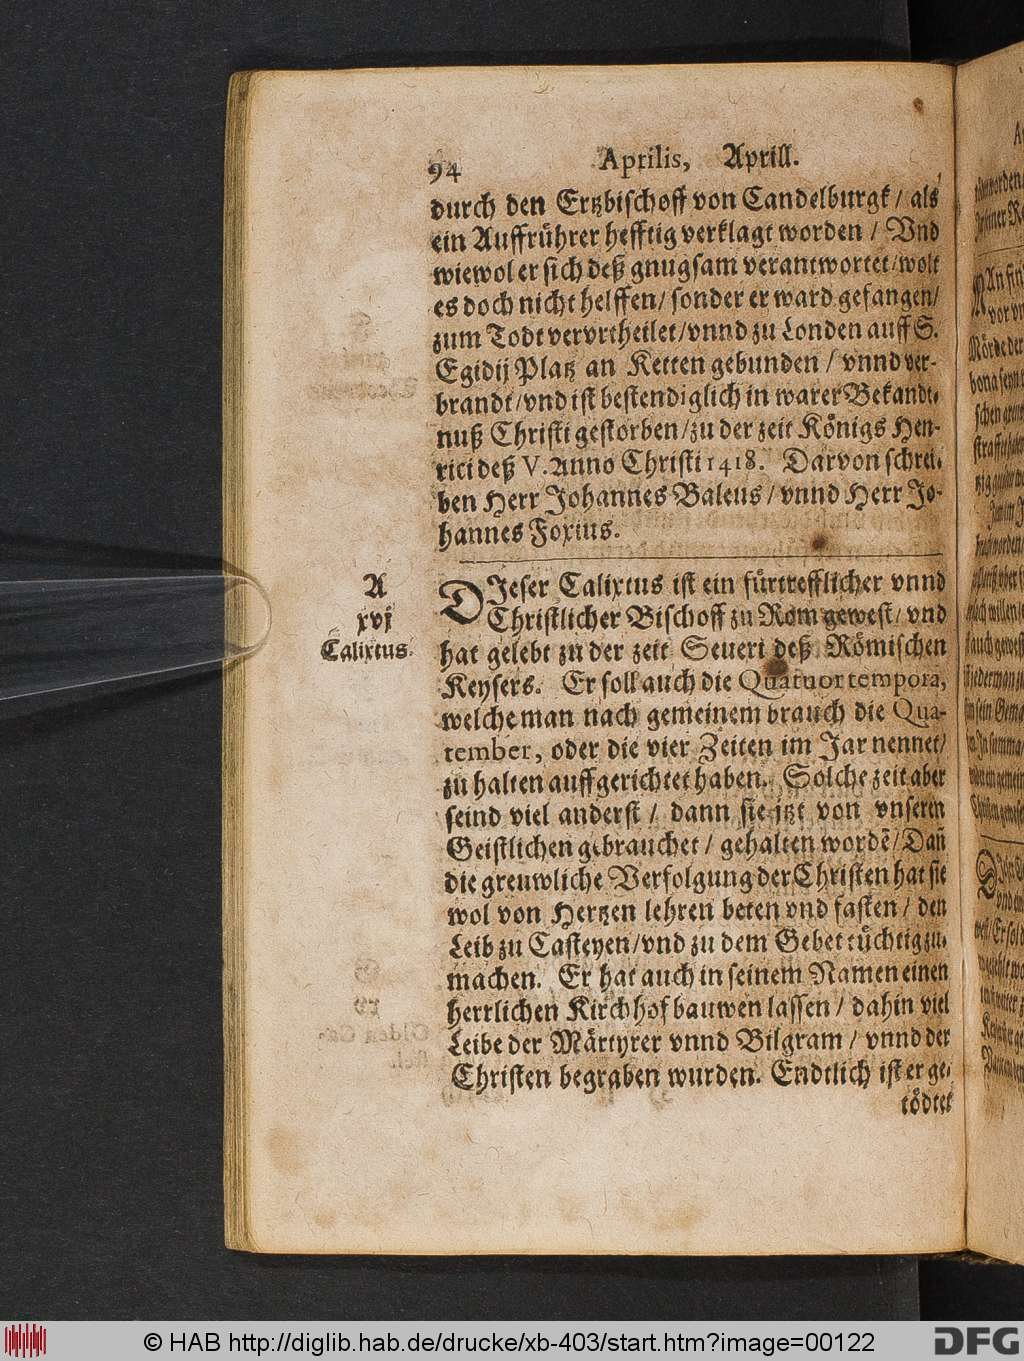 94 Aprilis, Aprill.
durch den Ertzbischoff von Candelburgk / als
ein Auffrührer hefftig verklagt worden / Vnd
wiewol er sich deß gnugsam verantwortet / wolt
es doch nicht helffen / sonder er ward gefangen /
zum Todt vervrtheilet / vnnd zu Londen auff S.
Egidij Platz an Ketten gebunden / vnnd ver-
brandt / vnd ist bestendiglich in warer Bekandt-
nuß Christi gestorben / zu der zeit Königs Hen-
rici deß V. Anno Christi 1418. Darvon schrei-
ben Herr Johannes Baleus / vnnd Herr Jo-
hannes Foxius.
A
xvj
Calixtus.
DJeser Calixtus ist ein fürtrefflicher vnnd
Christlicher Bischoff zu Rom gewest / vnd
hat gelebt zu der zeit Seueri deß Römischen
Keysers. Er soll auch die Quatuor tempora,
welche man nach gemeinem brauch die Qua-
tember, oder die vier Zeiten im Jar nennet /
zu halten auffgerichtet haben. Solche zeit aber
seind viel anderst / dann sie itzt von vnsern
Geistlichen gebrauchet / gehalten wordē / Dañ
die greuwliche Verfolgung der Christen hat sie
wol von Hertzen lehren beten vnd fasten / den
Leib zu Casteyen / vnd zu dem Gebet tüchtig zu-
machen. Er hat auch in seinem Namen einen
herrlichen Kirchhof bauwen lassen / dahin viel
Leibe der Märtyrer vnnd Bilgram / vnnd der
Christen begraben wurden. Endtlich ist er ge-
tödtet
© HAB http://diglib.hab.de/drucke/xb-403/start.htm?image=00122
DFG